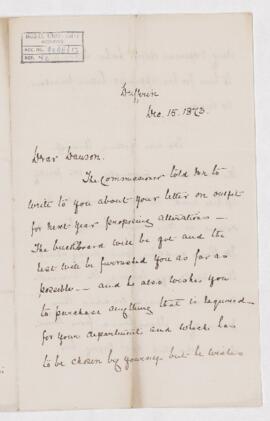 McGILL UNIVERSITY
ARCHIVES
ACC. NO.
REF.
Dufferin
Dec. 15. 1873.
Dear Dawson.
The Commissioner told me to
write to you about your letter on outfit
for next year proposing alterations —
The buckboard will be got and the
rest will be furnished you as far as
possible — and he also wishes you
to purchase anything that is required —
for your department and which has
to be chosen by yourself but he wishes